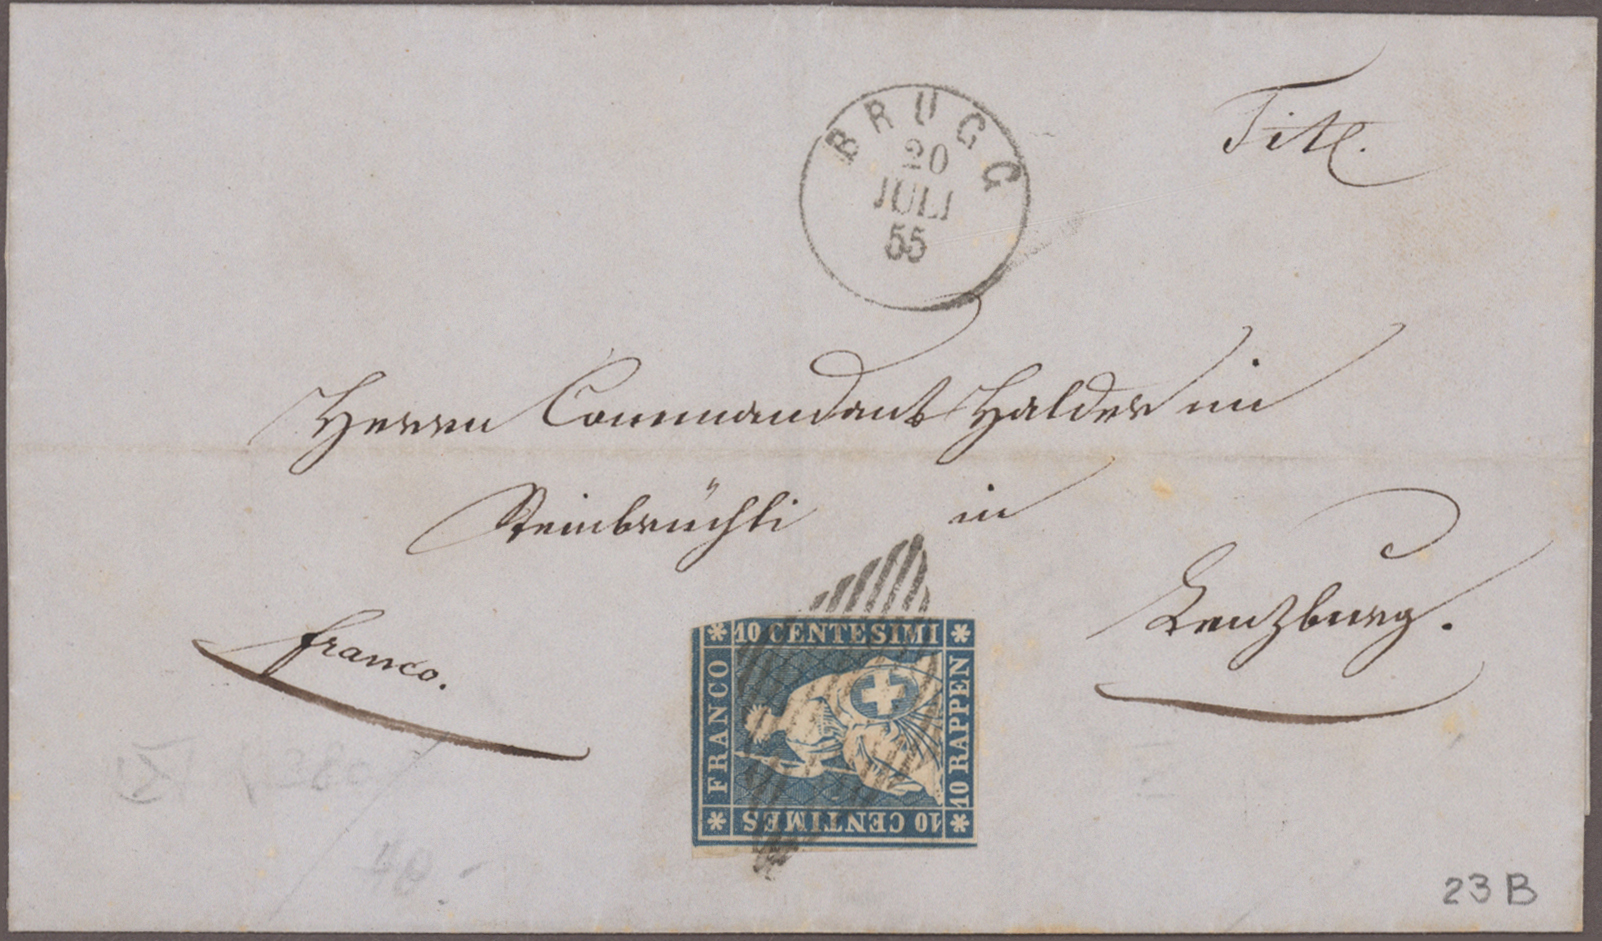 BRUGG
20
JULI
55
Titl.
Herrn Commandant Halder im
Steinbrüchli in
Lenzburg.
franco.
10 CENTESIMI
FRANCO
10 RAPPEN
10 CENTIMES
40 -
23 B